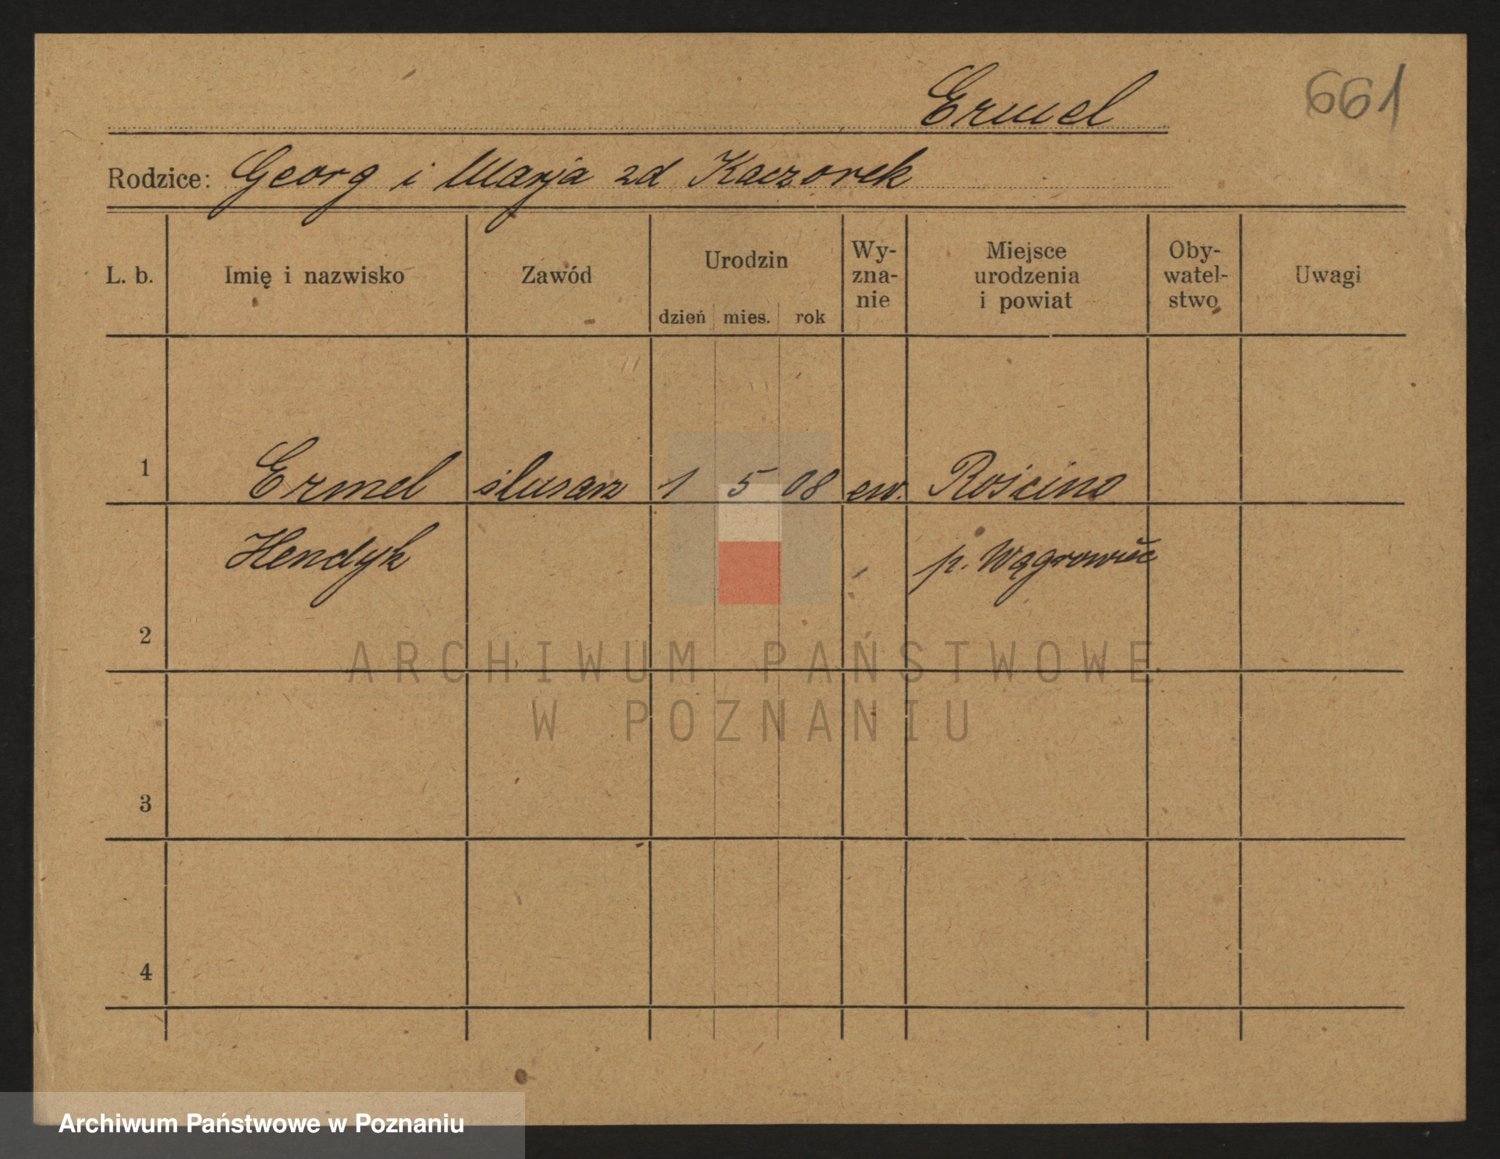 Ermel
661
Rodzice: Georg i Marja zd Kaczorek
L. b.
Imię i nazwisko
Zawód
Urodzin
dzień mies. rok
Wy-
zna-
nie
Miejsce
urodzenia
i powiat
Oby-
watel-
stwo
Uwagi
1 Ermel ślusarz 1 5 08 ew. Rościno
Hendyk p. Wągrowiec
2
ARCHIWUM PAŃSTWOWE
W POZNANIU
3
4
Archiwum Państwowe w Poznaniu